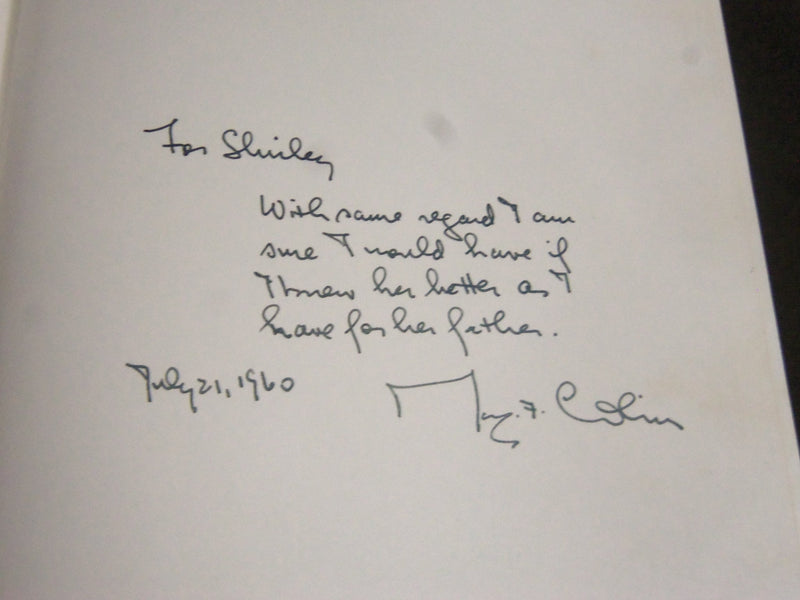 For Shirley
With same regard I am
sure I would have if
I knew her better as I
have for her father.
July 21, 1960
F.